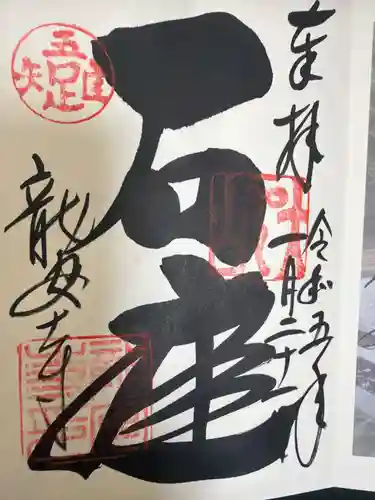 奉拝
令和五年
一月二十
石庭
吾唯足知
龍安寺